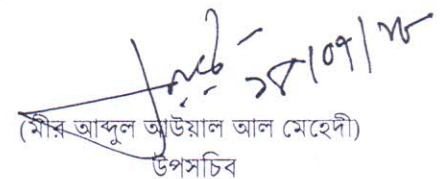 ১৮/০৭/১৮
(মীর আব্দুল আউয়াল আল মেহেদী)
উপসচিব